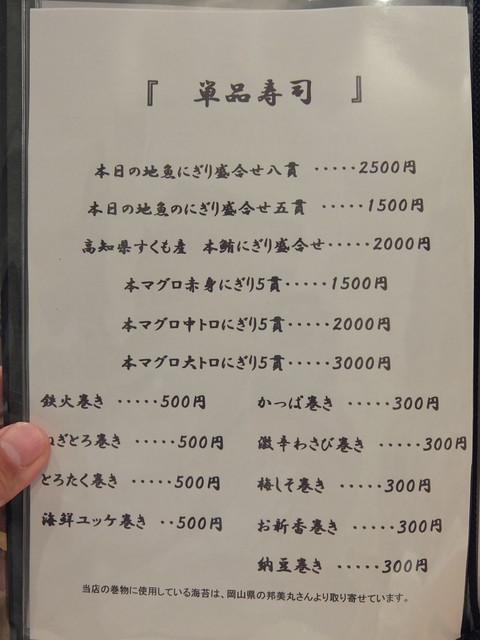 『 単品寿司 』
本日の地魚にぎり盛合せ八貫 ‥‥‥2500円
本日の地魚のにぎり盛合せ五貫 ‥‥‥1500円
高知県すくも産 本鮪にぎり盛合せ‥‥‥2000円
本マグロ赤身にぎり5貫‥‥‥1500円
本マグロ中トロにぎり5貫‥‥‥2000円
本マグロ大トロにぎり5貫‥‥‥3000円
鉄火巻き ‥‥‥500円
ねぎとろ巻き ‥‥‥500円
とろたく巻き ‥‥‥500円
海鮮ユッケ巻き ‥500円
かっぱ巻き ‥‥‥300円
激辛わさび巻き ‥‥‥300円
梅しそ巻き ‥‥‥300円
お新香巻き ‥‥‥300円
納豆巻き ‥‥‥300円
当店の巻物に使用している海苔は、岡山県の邦美丸さんより取り寄せています。